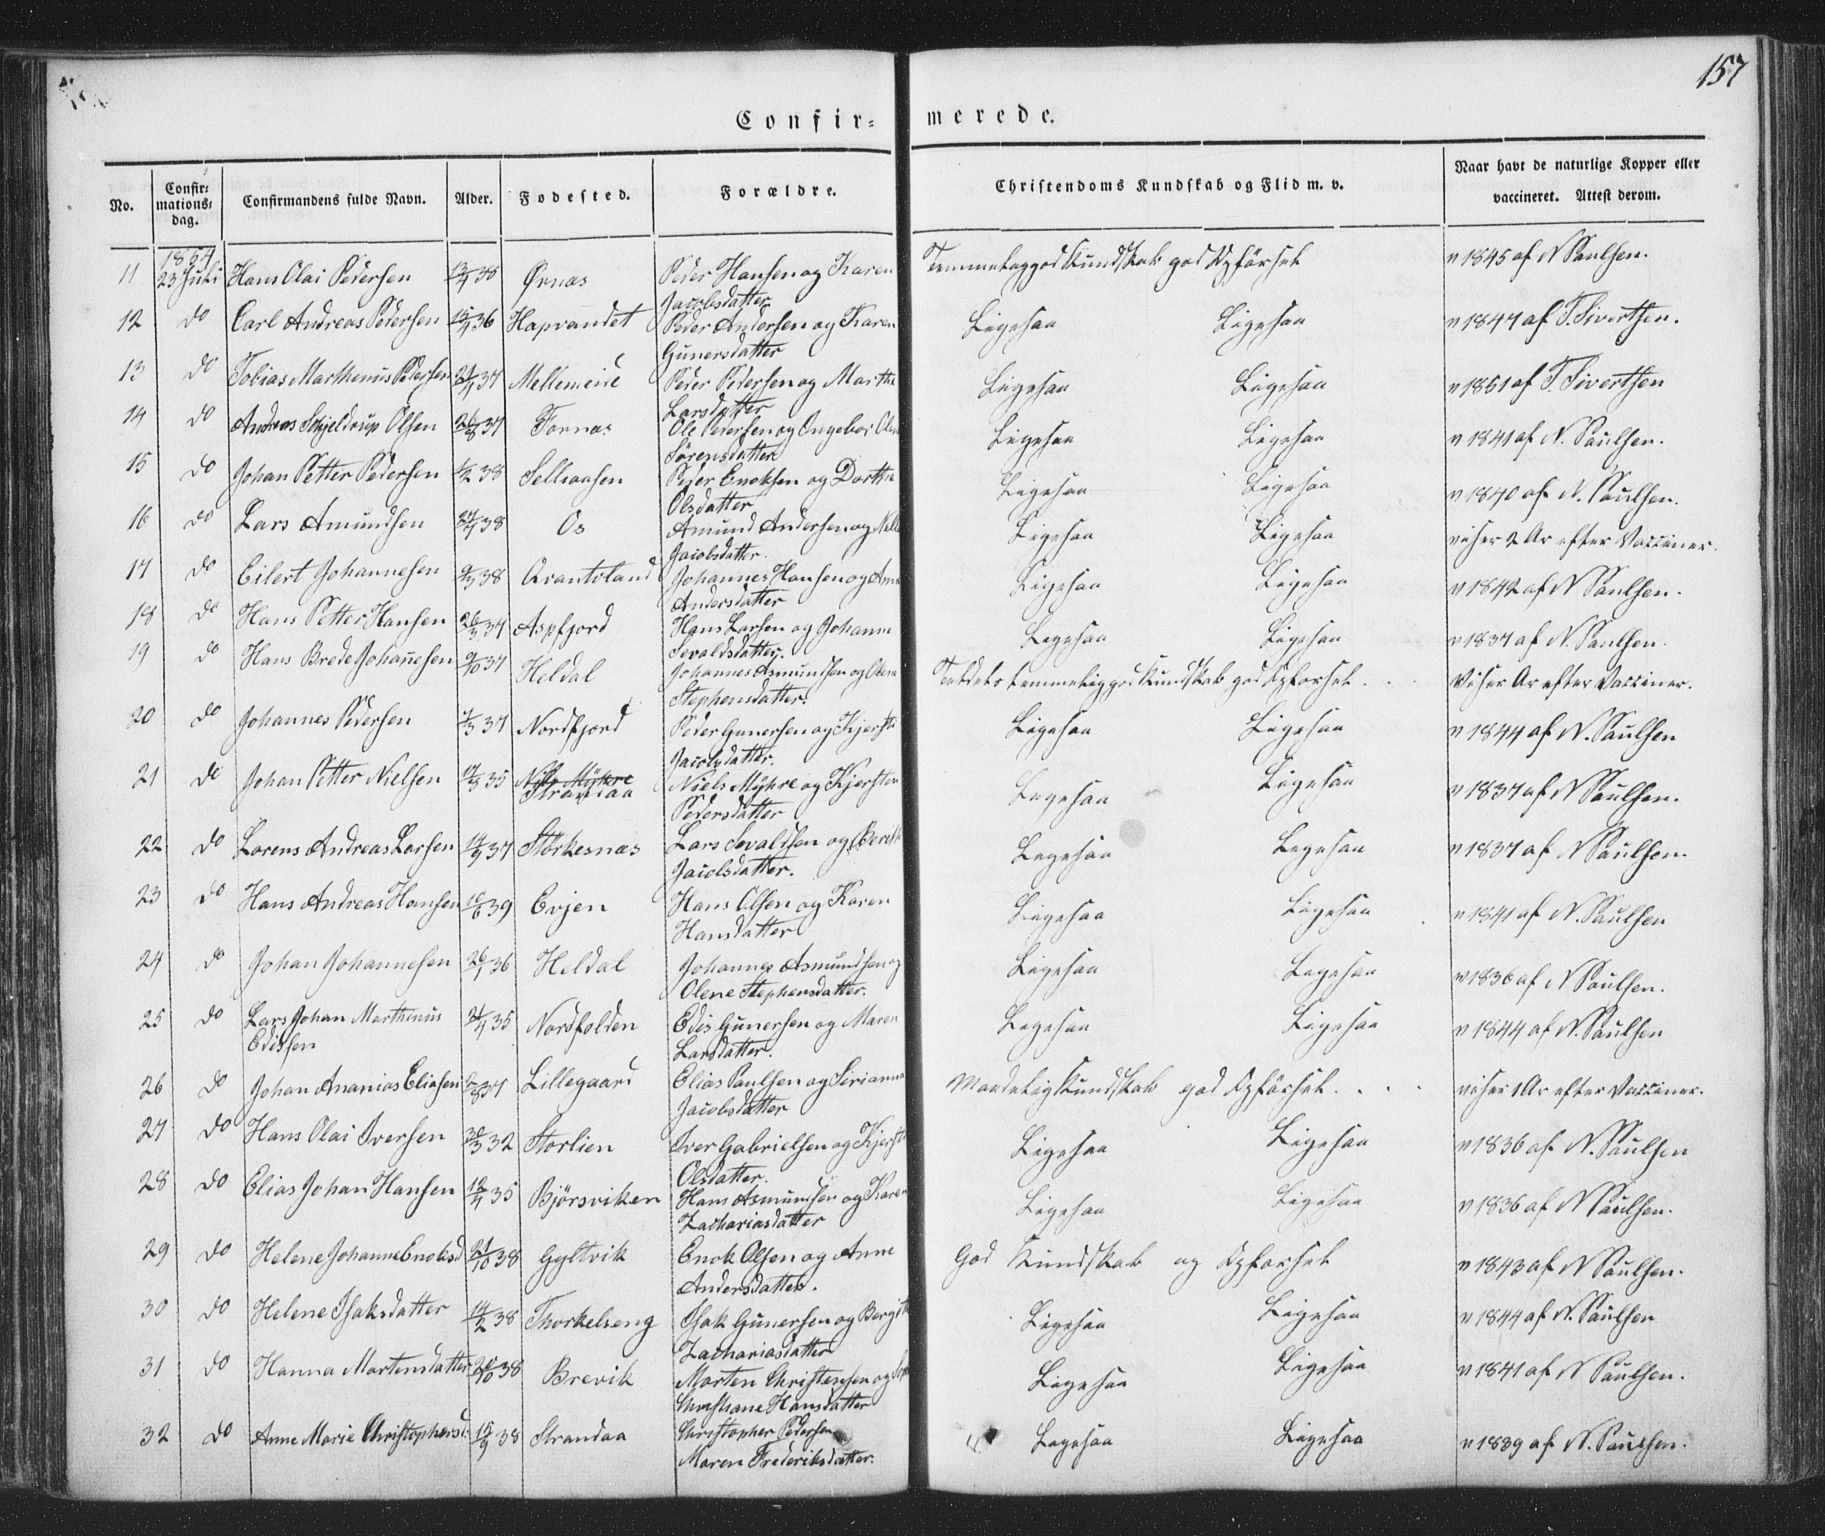 157
Confir- merede.
No. Confir- mations- dag. Confirmandens fulde Navn. Alder. Fødested. Forældre. Christendoms Kundskab og Flid m. v. Naar havt de naturlige Kopper eller vaccineret. Attest derom.
1854
11 23 Juli Hans Olai Pedersen 38 Ørnæs Peder Hansen og Karen Temmelig god Kundskab god Opførsel v 1845 af N Paulsen.
Jacobsdatter
12 do Carl Andreas Pedersen 36 Hapvandet Peder Andersen og Karen Ligesaa Ligesaa v 1847 af T. Sivertsen.
Gunersdatter
13 do Tobias Marthenus Pedersen 37 Mellemeide Peder Pedersen og Marthe Ligesaa Ligesaa v 1851 af T. Sivertsen
Larsdatter
14 do Andreas Skjeldrup Olsen 37 Fornæs Ole Pedersen og Ingebor Ligesaa Ligesaa v 1841 af N. Paulsen.
Sörensdatter
15 do Johan Petter Pedersen 38 Peder Enoksen og Dorthe Ligesaa Ligesaa v 1840 af N. Paulsen.
Olsdatter
16 do Lars Amundsen 38 Os Amund Andersen og Ligesaa Ligesaa viser 2 Ar efter Vacciner.
Jacobsdatter.
17 do Eilert Johannesen 9/3 38 Qvantoland Johannes Hansen og Ligesaa Ligesaa v 1842 af N Paulsen.
Andersdatter
18 do Hans Petter Hansen 26/3 37 Aspfjord Hans Larsen og Johanne Ligesaa Ligesaa v 1837 af N. Paulsen.
Sevaldsdatter.
19 do Hans Brede Johanesen 9/10 37 Heldal Johannes Asmundsen og Olene temmelig god Kundskab god Opførsel . . . Viser Ar efter Vacciner.
Stephensdatter.
20 do Johannes Pedersen 37 Nordfjord Peder Gunersen og Kjersti Ligesaa Ligesaa v 1844 af N. Paulsen
Jacobsdatter.
21 do Johan Petter Nielsen 35 Strandaa Niels Myhre og Kjersten Ligesaa Ligesaa v 1837 af N Paulsen.
Pedersdatter
22 do Lorens Andreas Larsen 14/9 37 Störkesnæs Lars Sevaldsen og Berith Ligesaa Ligesaa v 1837 af N Paulsen.
Jacobsdatter.
23 do Hans Andreas Hansen 39 Evjen Hans Olsen og Karen Ligesaa Ligesaa v 1841 af N. Paulsen
Hansdatter
24 do Johan Johannesen 26/1 36 Heldal Johannes Asmundsen og Ligesaa Ligesaa v 1836 af N Paulsen.
Olene Stephensdatter.
25 do Lars Johan Marthinus 35 Nordfolden Edis Gunersen og Maren Ligesaa Ligesaa v 1844 af N. Paulsen
Edissen Larsdatter.
26 do Johan Ananias Eliasen 37 Lillegaard Elias Paulsen og Sirianna Maadelig Kundskab god Opførsel. . . . viser 1 Ar efter Vacciner.
Jacobsdatter
27 do Hans Olai Iversen 30/3 32 Storlien Iver Gabrielsen og Kjersti Ligesaa Ligesaa v 1836 af N. Paulsen
Olsdatter.
28 do Elias Johan Hansen 35 Björsviken Hans Asmundsen og Karen Ligesaa Ligesaa v 1836 af N Paulsen.
Zachariasdatter
29 do Helene Johanne Enoksd 21/10 38 Gyltvik Enok Olsen og Anne God Kundskab og Opførsel v 1843 af N Paulsen.
Andersdatter.
30 do Helene Isaksdatter 14/2 38 Thorkelseng Isak Gunersen og Ligesaa Ligesaa v 1844 af N. Paulsen
Zachariasdatter
31 do Hanna Mortensdatter 38 Brevik Morten Christensen og Ligesaa Ligesaa v 1841 af N Paulsen.
Christiane Hansdatter
32 do Anne Marie Christophersd: 15/9 38 Strandaa Christopher Pedersen Ligesaa Ligesaa v 1839 af N. Paulsen.
Maren Frederiksdatter.